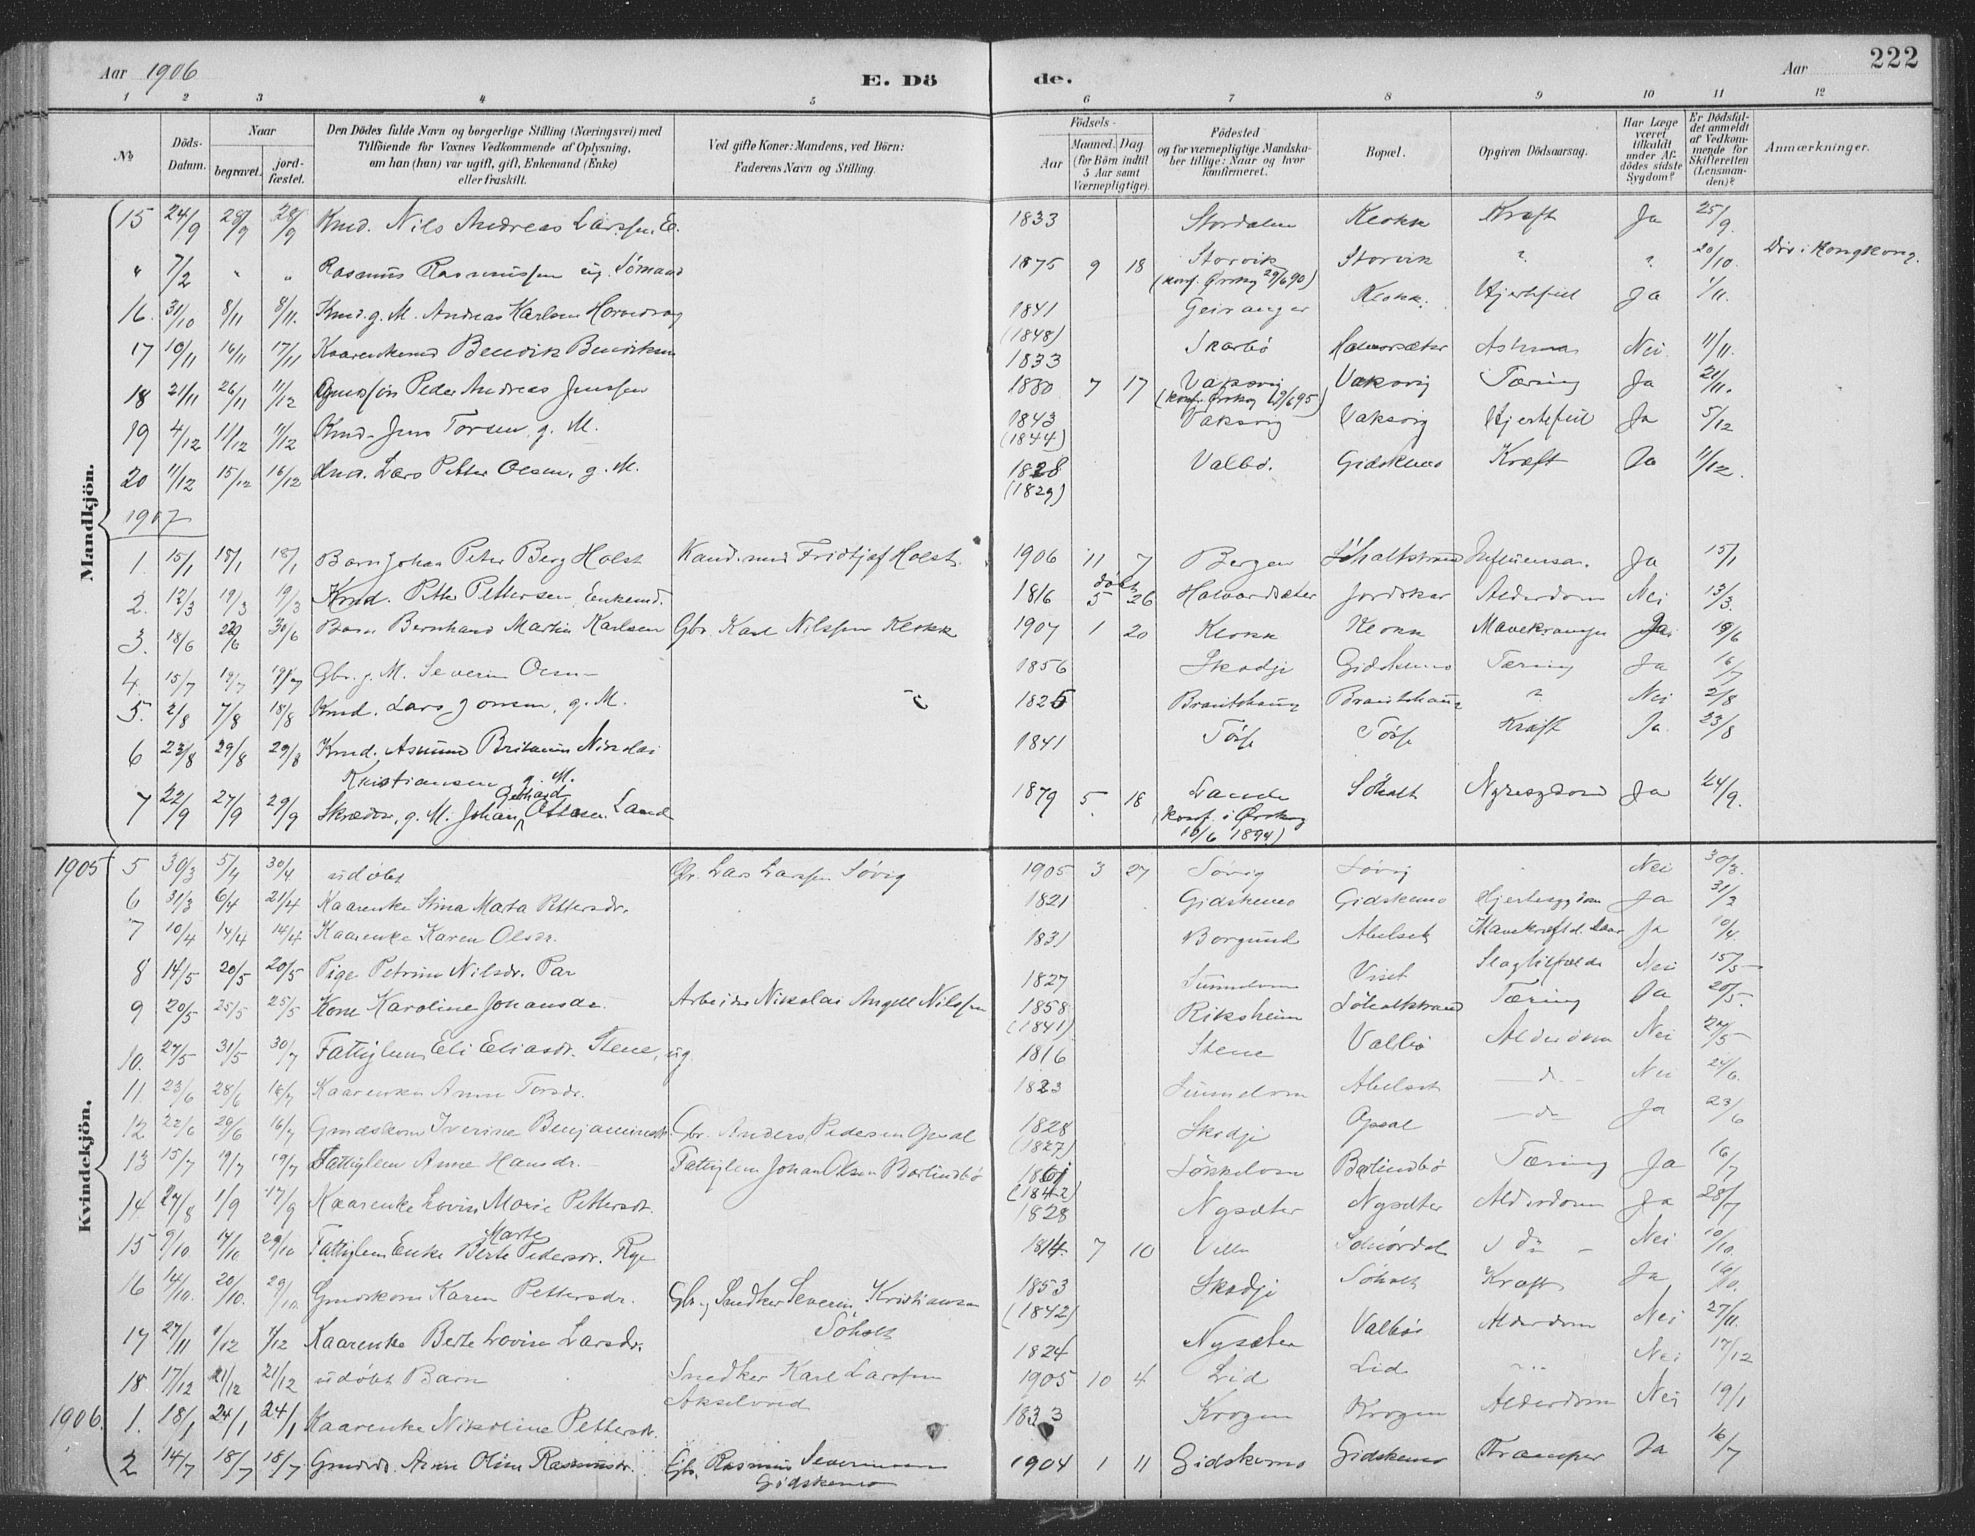 Aar 1906 E. Dö de. Aar 222
1 2 3 4 5 6 7 8 9 10 11 12
No Döds-Datum. Naar begravet. jordfæstet. Den Dödes fulde Navn og borgerlige Stilling (Næringsvei) med Tilföiende for Voxnes Vedkommende af Oplysning, om han (hun) var ugift, gift, Enkemand (Enke) eller fraskilt. Ved gifte Koner: Mandens, ved Börn: Faderens Navn og Stilling. Födsels- Aar Maaned. Dag (for Börn indtil 5 Aar samt Værnepligtige). Födested og for værnepligtige Mandskaber tillige: Naar og hvor konfirmeret. Bopæl. Opgiven Dödsaarsag. Har Læge været tilkaldt under Afdödes sidste Sygdom? Er Dödsfaldet anmeldt af Vedkommende for Skifteretten (Lensmanden)? Anmærkninger.
Mandkjön.
15 24/9 28/9 28/9 Kmd. Nils Andreas Larssen E. 1833 Stordalen Klokk Kræft Ja 25/9.
" 7/2 " " Rasmus Rasmussen ug. Sømand 1875 9 18 Storvik Storvik ? ? 20/10. Div. i Hongkong.
(konf. Ørskog 29/6 90)
16. 31/10 8/11 8/11. Kmd. g. M. Andreas Karlsen 1841 Geiranger Klokk. Hjertefeil Ja 1/11.
(1848)
17 10/11 16/11 17/11 Kaarenkemd Bendik Bendiksen 1833 Skarbø Halvorsæter Astma Nei 11/11.
18 21/11 26/11 11/12 Gmdssøn Peder Andreas Jenssen 1880 7 17 Vaksvig Vaksvig Tæring Ja 21/11.
(konf. Ørskog 6 95)
19 4/12 11/12 11/12 Kmd. Jens Torsen, g. M. 1843 Vaksvig Vaksvig Hjertefeil Ja 5/12
(1844)
20 11/12 15/12 16/12 Lars Petter Olsen, g. M. 1828 Valbø. Gidskemo Kræft Ja 11/12.
(1829)
1907
1. 15/1 18/1 18/1 Barn Johan Peter Berg Holst Kand. med Fridtjof Holst. 1906 11 7 Bergen Søholtstrand Influensa. Ja 15/1
2. 12/3 19/3 19/3 Kmd. Petter Pettersen, Enkemd. 1816 5 døbt 26 Halvardsæter Alderdom Nei 13/3.
3. 18/6 29/6 30/6 Barn Bernhard Martin Karlsen Gbr. Karl Nilssen Klokk 1907 1 20 Klokk Klokk Mavekrampe Ja 19/6
4. 15/7 19/7 19/7 Gbr. g. M. Severin Olsen 1856 Skodje Gidskemo Tæring Ja 16/7
5. 2/8 7/8 18/8 Kmd. Lars Jonsen, g. M. 1825 Brautshaug Brautshaug ? Nei 2/8
6 23/8 29/8 29/8 Kmd. Asmund Nikolai 1841 Tørse Tørse Kræft Ja. 23/8
Kristiansen g. M.
7 22/9 27/9 29/9 Skrædder, g. M. Johan Gerhard Ottesen Lande 1879 5. 18 Lande Søholt Nyresygdom Ja 24/9.
(konf. i Ørskog
10/6 1894)
Kvindekjön.
1905 5 30/3 5/4 30/4 udøbt Gbr. Lars Larssen Søvig 1905 3 27 Søvig Søvig Nei 30/3.
6 31/3 6/4 21/4 Kaarenke Stina Marta Pettersdr. 1821 Gidskemo Gidskemo Hjertesygdom Ja 31/3
7 10/4 14/4 14/4 Kaarenke Karen Olsdr. 1831 Borgund Abelset Ja 10/4.
8 14/5 20/5 20/5 Pige Petrine Nilsdr. 1827 Sunndom Viset Slagtilfælde Nei 15/5
9 20/5 25/5 25/5 Kone Karoline Johansdr. Arbeider Nikolai Angell Nilssen 1858 Riksheim Søholtstrand Tæring Ja 20/5.
(1841)
10. 27/5 31/5 30/7 Fattiglem Eli Eliasdr. Stene, ug. 1816 Stene Valbø Alderdom Nei 27/5
11. 23/6 28/6 16/7 Kaarenke Anne Torsdr. 1823 Sunndom Abelset — d. — Nei 24/6.
12 22/6 29/6 16/7 Gmdskone Iverine Benjaminsdr. Gbr. Anders Pedersen Opsal 1828 Skodje Opsal — d. Ja 23/6
(1827)
13 15/7 19/7 19/7 Fattiglem Anne Hansdr. Fattiglem Johan Olsen Barlindbø Barlindbø Tæring Ja 16/7
(1842)
14. 27/8 1/9 17/9 Kaarenke Lovise Marie Pettersdr. 1828 Nysæter Nysæter Alderdom Ja 28/7
15 9/10 14/10 29/10 Fattiglem Enke Berte Marte Pedersdr. Rye 1814 7 10 Ville d. — Nei 10/10.
16 14/10. 20/10. 29/10. Gmdskone Karen Pettersdr. Gbr. Snedker Severin Kristiansen Søholt 1853 Skodje Søholt Kræft Ja 16/10.
(1842)
17 27/11 1/12 1/12 Kaarenke Berte Lovise Larsdr. 1824 Nysæter Valbø Alderdom Nei 27/11.
18 17/12 21/12 21/12 udøbt Barn Snedker Karl Larssen Akselvoed 1905 10 4 Lid Lid Nei 17/12
1906. 1. 18/1 24/1 24/1 Kaarenke Nikoline Pettersdr. 1833 Krogen Krogen Alderdom Nei 19/1
2 14/7 18/7 18/7 Gmdsd. Anne Oline Rasmusdr. Gbr. Rasmus Severinsen Gidskemo 1904 1 11 Gidskemo Gidskemo Kramper Ja 16/7